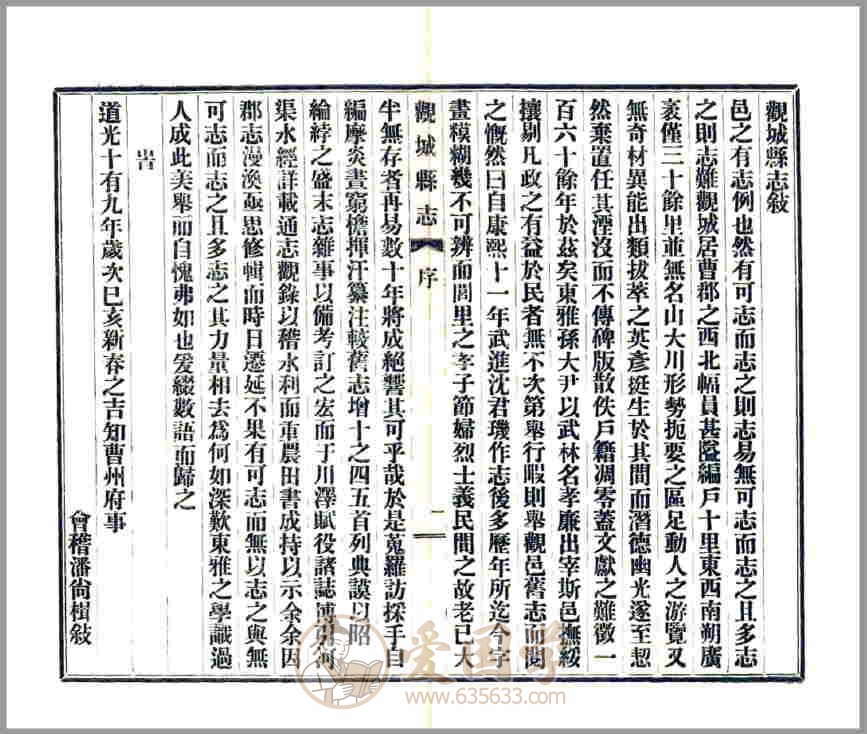 觀城縣志敍
邑之有志例也然有可志而志之則志易無可志而志之且多志
之則志難觀城居曹郡之西北幅員甚隘編戶十里東西南朔廣
袤僅三十餘里並無名山大川形勢扼要之區足動人之游覽又
無奇材異能出類拔萃之英彥挺生於其間而潛德幽光遂至恝
然棄置任其湮沒而不傳碑版散佚戶籍凋零蓋文獻之難徵一
百六十餘年於茲矣東雅孫大尹以武林名孝廉出宰斯邑撫綏
攘剔凡政之有益於民者無不次第舉行暇則舉觀邑舊志而閱
之慨然曰自康熙十一年武進沈君璣作志後多歷年所迄今字
畫糢糊幾不可辨而閭里之孝子節婦烈士義民間之故老已大
觀城縣志 序 二
半無存者再易數十年將成絕響其可乎哉於是蒐羅訪採手自
編摩炎晝窮檐揮汗纂注較舊志增十之四五首列典謨以昭
綸綍之盛末志雜事以備考訂之宏而于川澤賦役諸誌溥
渠水經詳載通志觀錄以稽水利而重農田書成持以示余余因
郡志漫渙亟思修輯而時日遷延不果有可志而無以志之與無
可志而志之且多志之其力量相去為何如深歎東雅之學識過
人成此美舉而自愧弗如也爰綴數語而歸之
旹
道光十有九年歲次己亥新春之吉知曹州府事
會稽潘尙楫敍
爱国学
www.635633.com